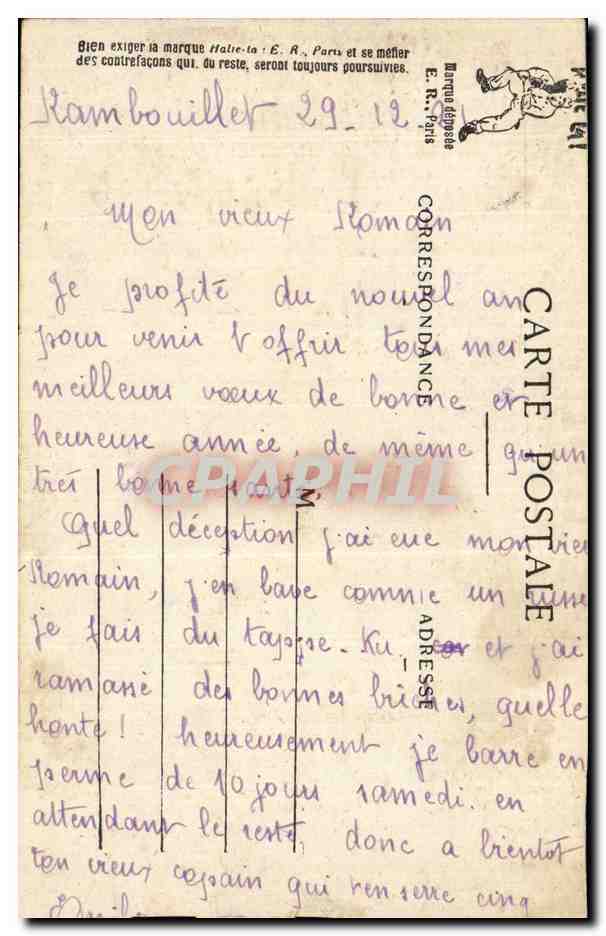 Bien exiger la marque Halte-là ! E. R., Paris et se méfier
des contrefaçons qui, du reste, seront toujours poursuivies.
Marque déposée
E. R., Paris
Rambouillet 29-12
Mon vieux Romain
Je profite du nouvel an
pour venir t'offrir tous mes
meilleurs vœux de bonne et
heureuse année, de même qu'un
très bonne santé.
Quel déception j'ai eue mon vieux
Romain, j'en bave comme un russe
je fais du tappe-Ku. et j'ai
ramassé des bonnes briques, quelle
honte! heureusement je barre en
perme de 10 jours samedi. en
attendant le reste, donc a bientot
ton vieux copain qui t'en serre cinq
CORRESPONDANCE
ADRESSE
CARTE POSTALE
M
CPARPHIL